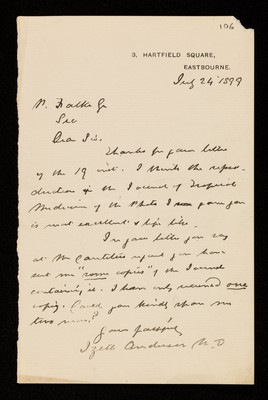 106
3, HARTFIELD SQUARE,
EASTBOURNE.
July 24 1899
Sec
Dear Sir.
Thanks for your letter
of the 19 inst. I think the repro-
duction in the Journal of Tropical
Medicine of the Photo I gave you
is most excellent & life like.
In your letter you say
at the you have
sent me "some copies" of the Journal
containing it. I have only received one
copy. Could you kindly spare me
two more?
Yours faithfully
Izett Anderson M.D